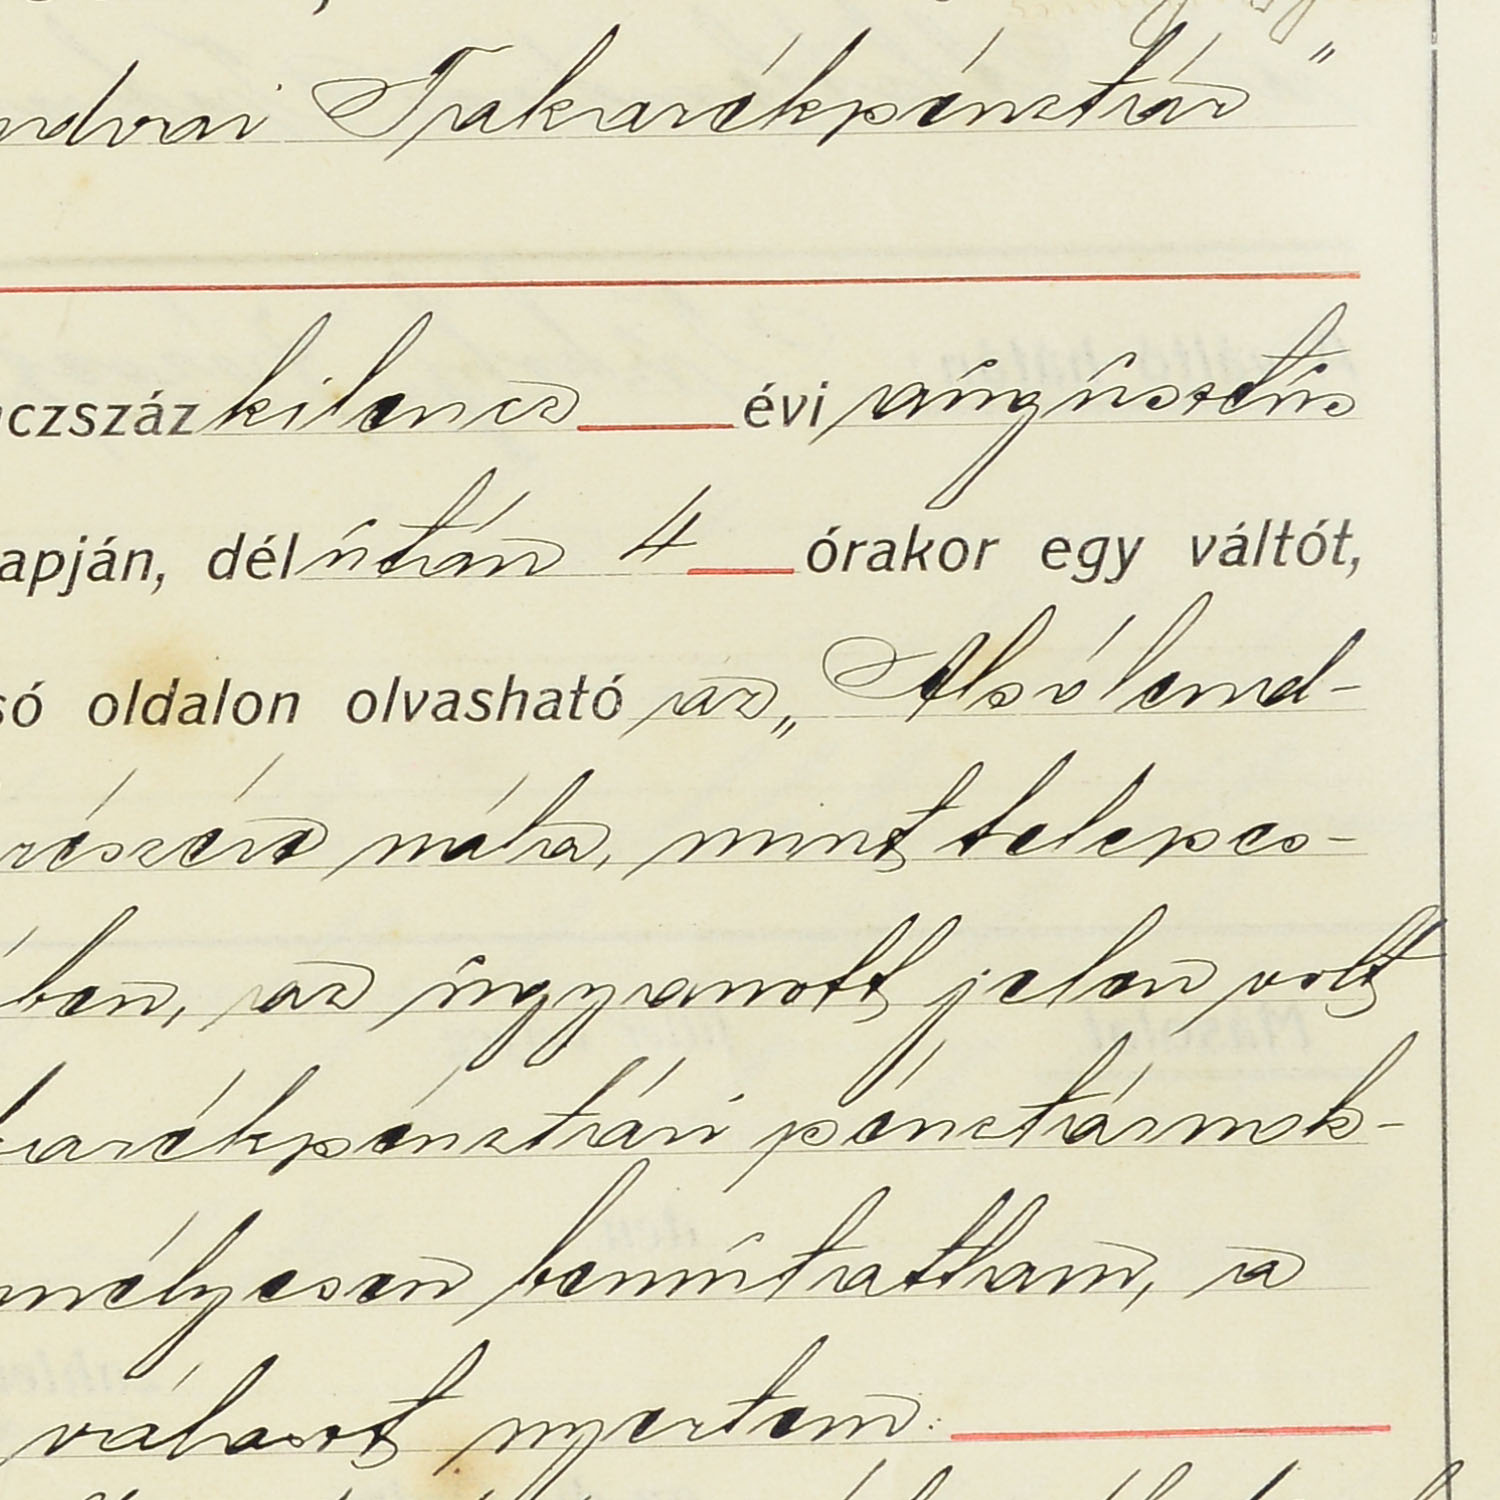 ndvai Takarékpénztár"
czszáz kilencz évi augusztus
apján, délután 4 órakor egy váltót,
só oldalon olvasható az „Alsólend-
részére mába, mint telepes-
ben, az ugyanott jelen volt
karékpénztári pénztárnok-
mélyesen bemutattam, a
választ nyertem: